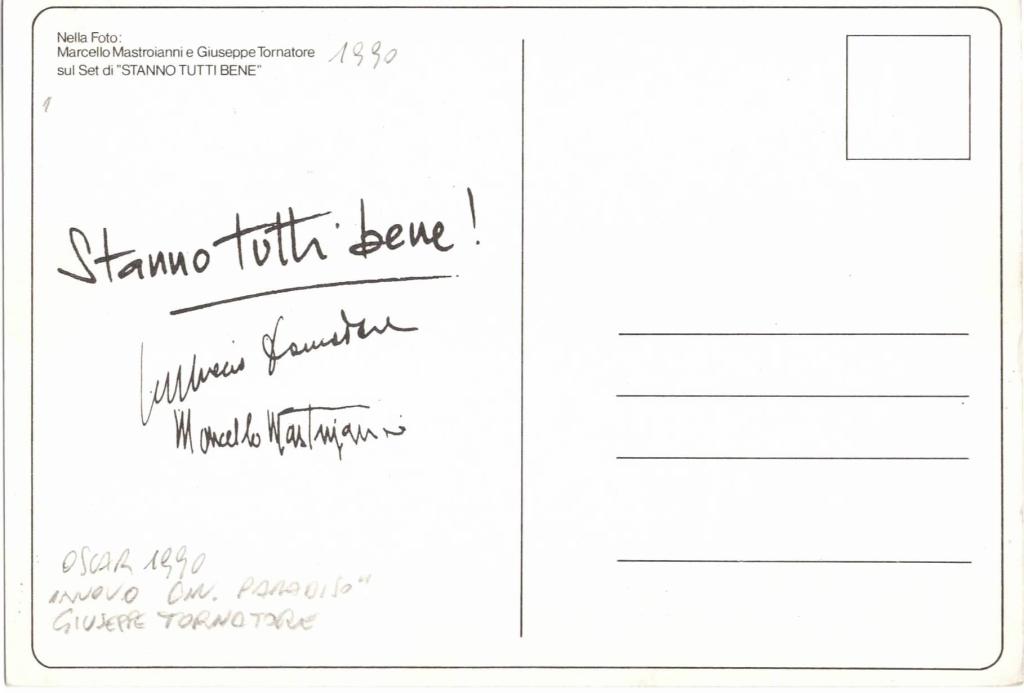 Nella Foto:
Marcello Mastroianni e Giuseppe Tornatore
sul Set di "STANNO TUTTI BENE"
1990
1
Stanno tutti bene!
Marcello Mastroianni
OSCAR 1990
PARADISO"
GIUSEPPE TORNATORE